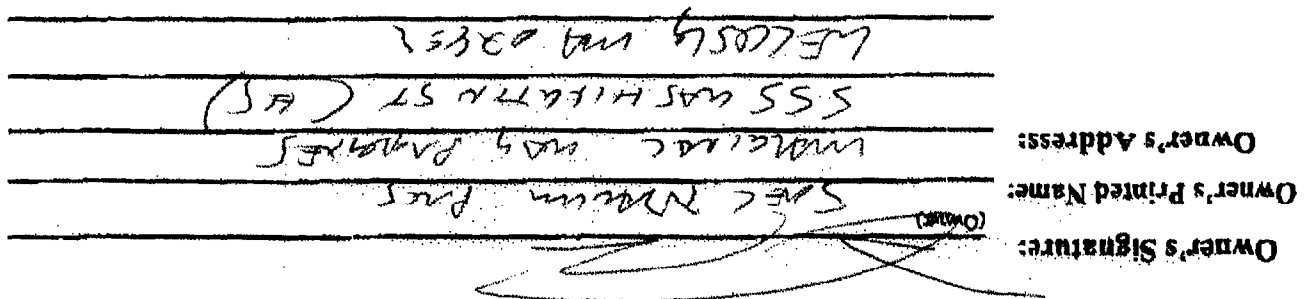 Owner's Signature:
(Owner)
Owner's Printed Name: PRES
Owner's Address: WAY
555 WASHINGTON ST (#5)
WELLESLEY MA 02482